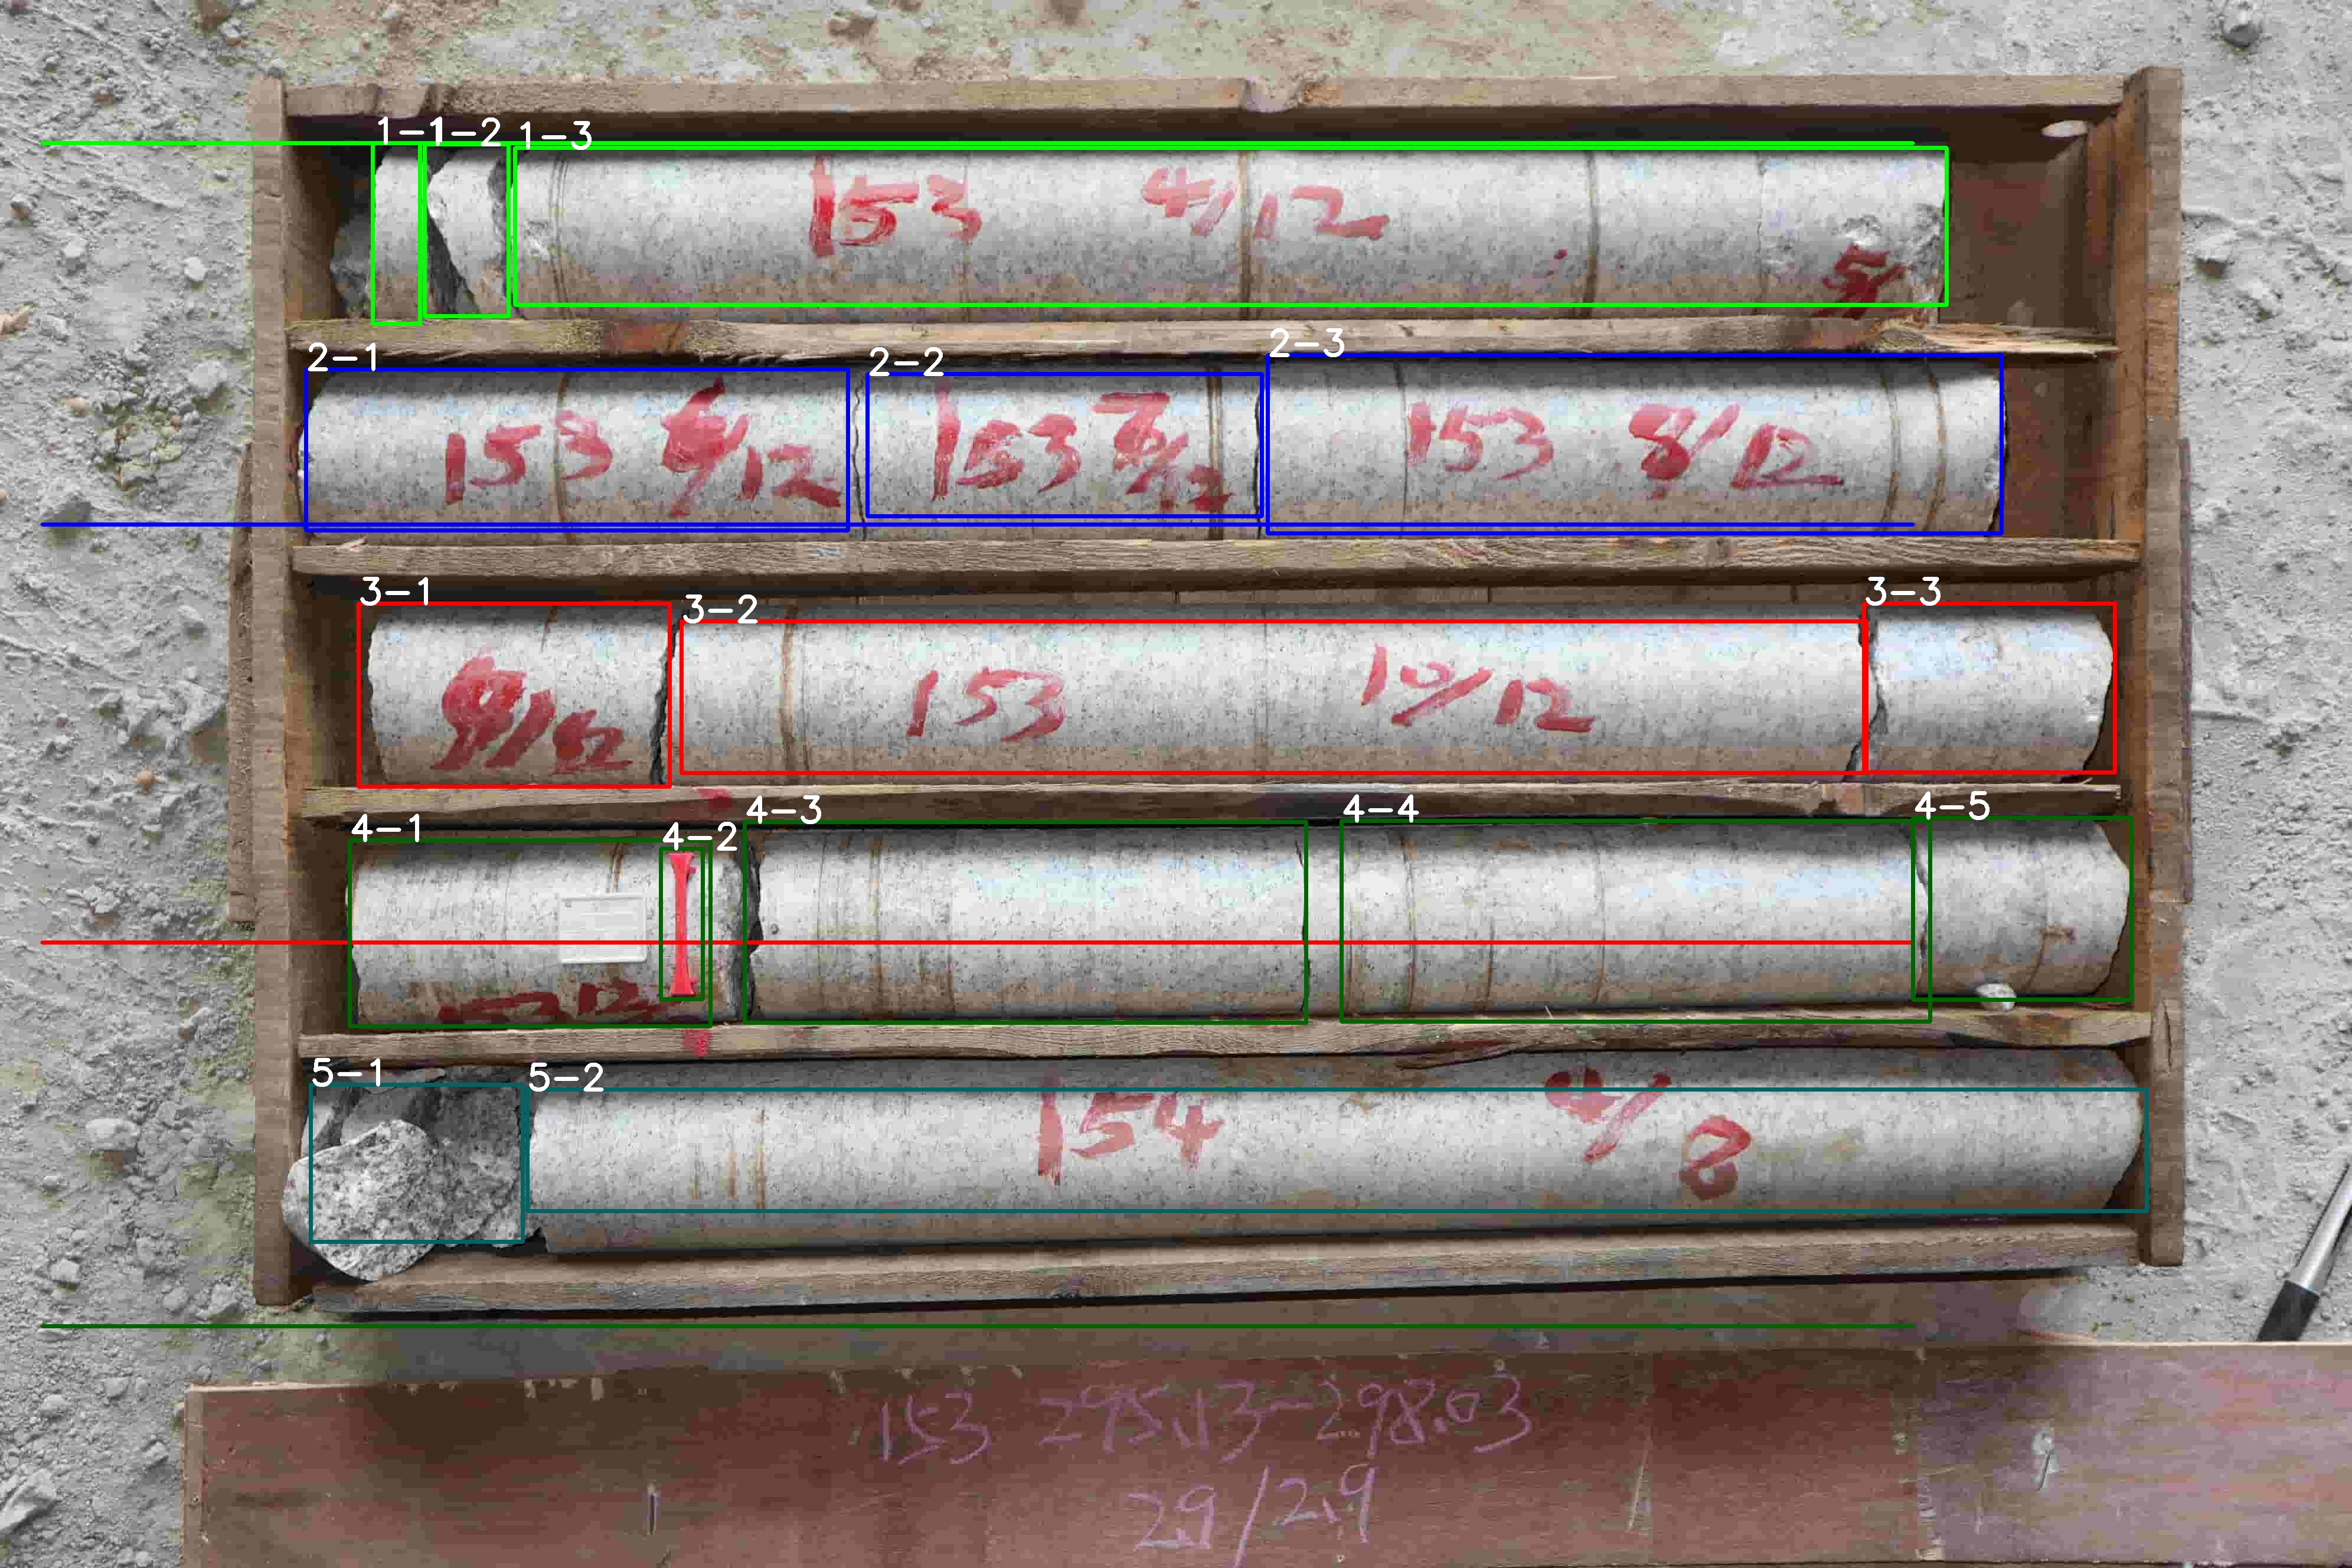 1-1 1-2 1-3
153 4/12
5/
2-1 2-2 2-3
153 6/12 153 7/12 153 8/12
3-1 3-2 3-3
9/12 153 10/12
4-1 4-2 4-3 4-4 4-5
153 12
5-1 5-2
154 4/8
153 295.13-298.03
2.9/2.9